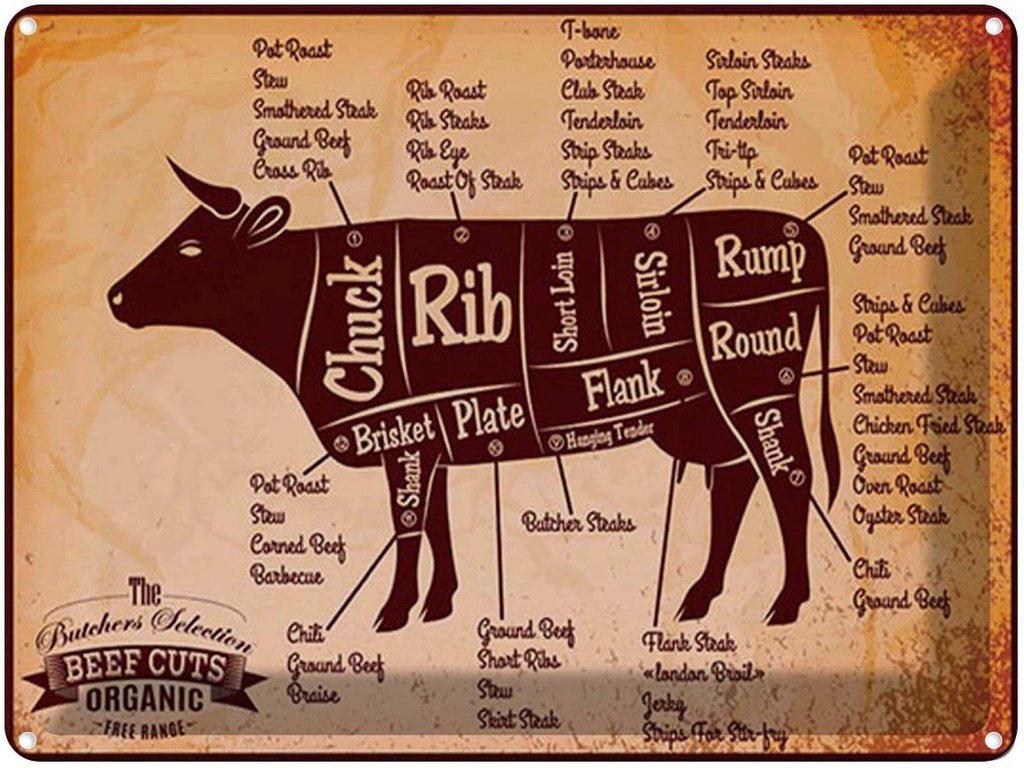 Pot Roast
Stew
Smothered Steak
Ground Beef
Cross Rib
Rib Roast
Rib Steaks
Rib Eye
Roast Of Steak
T-bone
Porterhouse
Club Steak
Tenderloin
Strip Steaks
Strips & Cubes
Sirloin Steaks
Top Sirloin
Tenderloin
Tri-tip
Strips & Cubes
Pot Roast
Stew
Smothered Steak
Ground Beef
Strips & Cubes
Pot Roast
Stew
Smothered Steak
Chicken Fried Steak
Ground Beef
Oven Roast
Oyster Steak
Chili
Ground Beef
1
2
3
4
5
Chuck
Rib
Short Loin
Sirloin
Rump
Round
6
Flank
Brisket
Plate
Hanging Tender
Shank
Shank
7
Pot Roast
Stew
Corned Beef
Barbecue
Butcher Steaks
Chili
Ground Beef
Braise
Ground Beef
Short Ribs
Stew
Skirt Steak
Flank Steak
«london Broil»
Jerky
Strips For Stir-fry
The
Butchers Selection
BEEF CUTS
ORGANIC
-FREE RANGE-